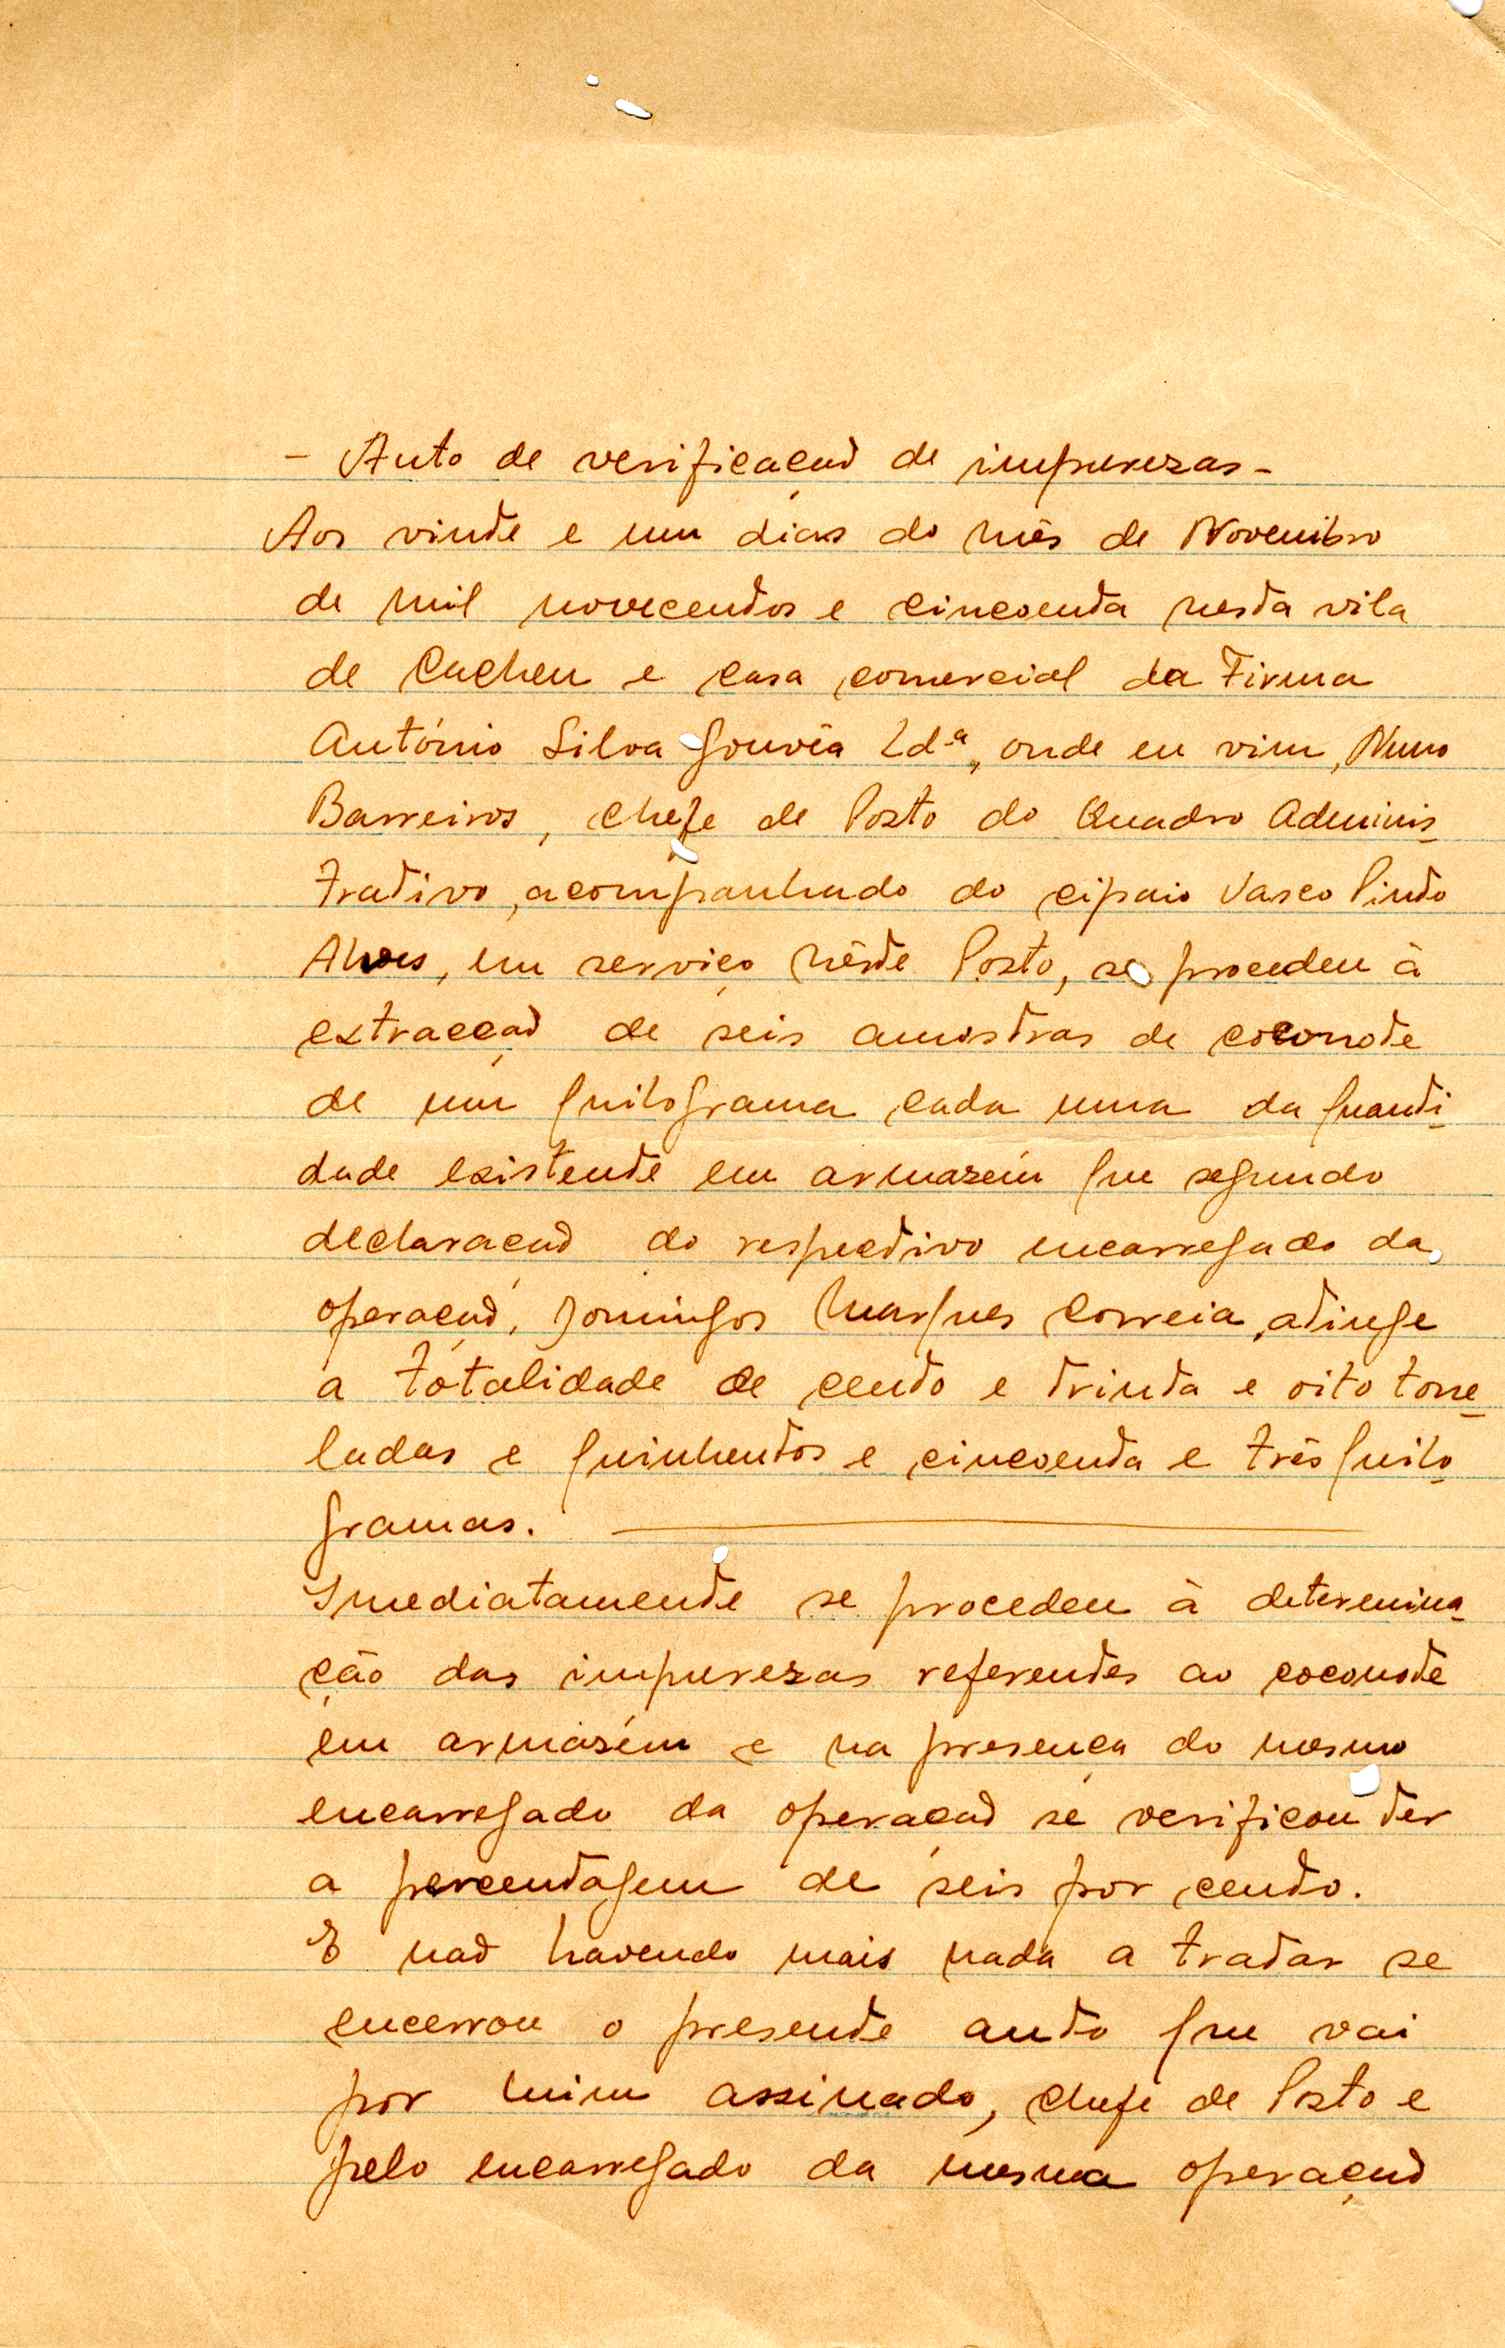 - Auto de verificação de impurezas -
Aos vinte e um dias do mês de Novembro
de mil novecentos e cincoenta nesta vila
de Cacheu e casa comercial da Firma
António Silva Gouvêa Ld.ª, onde eu vim, Nuno
Barreiros, Chefe de Posto do Quadro Adminis-
trativo, acompanhado do cipaio Vasco Pinto
Alves, em serviço nêste Posto, se procedeu à
extracção de seis amostras de coconote
de um quilograma cada uma da quanti-
dade existente em armazém que segundo
declaração do respectivo encarregado da
operação, Domingos Marques Correia, atinge
a totalidade de cento e trinta e oito tone-
ladas e quinhentos e cincoenta e três quilo-
gramas.
Imediatamente se procedeu à determina-
ção das impurezas referentes ao coconote
em armazém e na presença do mesmo
encarregado da operação se verificou ter
a percentagem de seis por cento.
E não havendo mais nada a tratar se
encerrou o presente auto que vai
por mim assinado, Chefe de Posto e
pelo encarregado da mesma operação